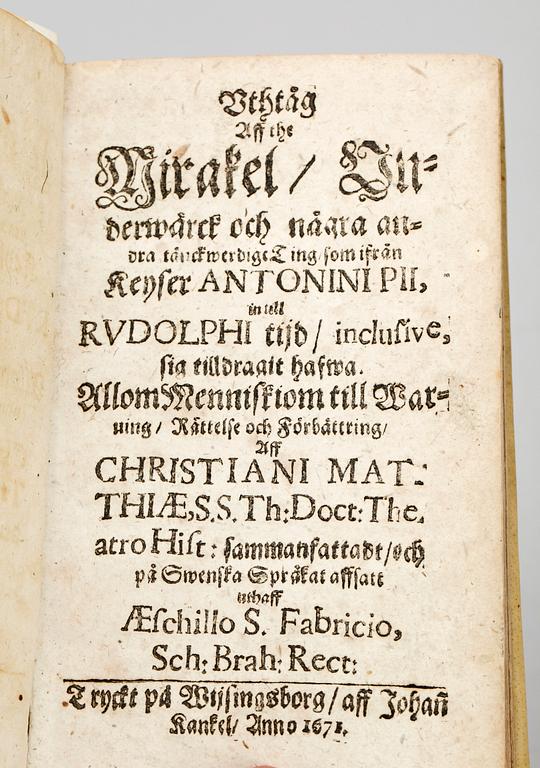 Vthtåg
Aff the
Mirakel / Vn-
derwärck och några an-
dra tänckwerdige Ting / som ifrån
Keyser ANTONINI PII,
in till
RVDOLPHI tijd / inclusive,
sig tilldragit hafwa.
Allom Menniskiom till War-
ning / Rättelse och Förbättring /
Aff
CHRISTIANI MAT:
THIÆ, S. S. Th: Doct: The.
atro Hist: sammanfattadt / och
på Swenska Språkat affsatt
uthaff
Æschillo S. Fabricio,
Sch: Brah: Rect:
Tryckt på Wijsingsborg / aff Johan̄
Kankel / Anno 1671.